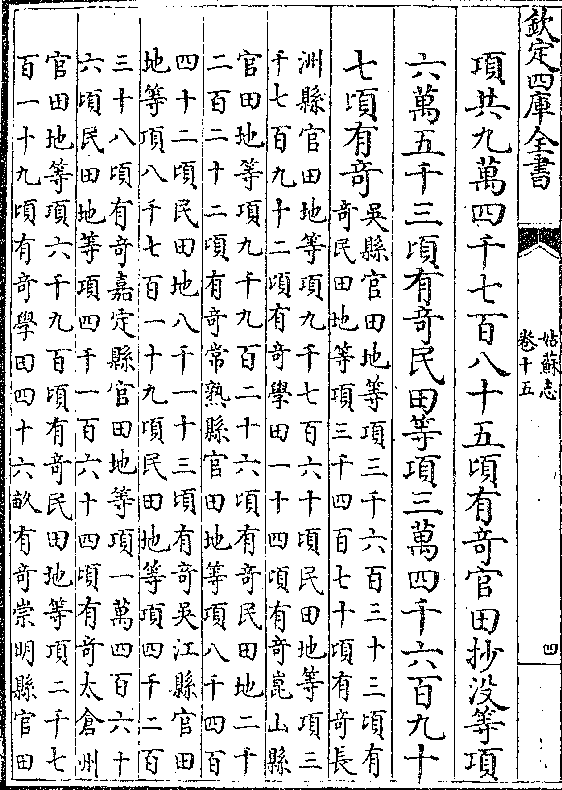 欽定四庫全書
姑蘇志
卷十五
四
項共九萬四千七百八十五頃有竒官田抄没等項
六萬五千三頃有竒民田等項三萬四千六百九十
七頃有竒
吳縣官田地等項三千六百三十三頃有
竒民田地等項三千四百七十頃有竒長
洲縣官田地等項九千七百六十頃民田地等項三
千七百九十二頃有竒學田一十四頃有竒崑山縣
官田地等項九千九百二十六頃有竒民田地二千
二百二十二頃有竒常熟縣官田地等項八千四百
四十二頃民田地八千一十三頃有竒吳江縣官田
地等項八千七百一十九頃民田地等項四千二百
三十八頃有竒嘉定縣官田地等項一萬四百六十
六頃民田地等項四千一百六十四頃有竒太倉州
官田地等項六千九百頃有竒民田地等項二千七
百一十九頃有竒學田四十六畝有竒崇明縣官田